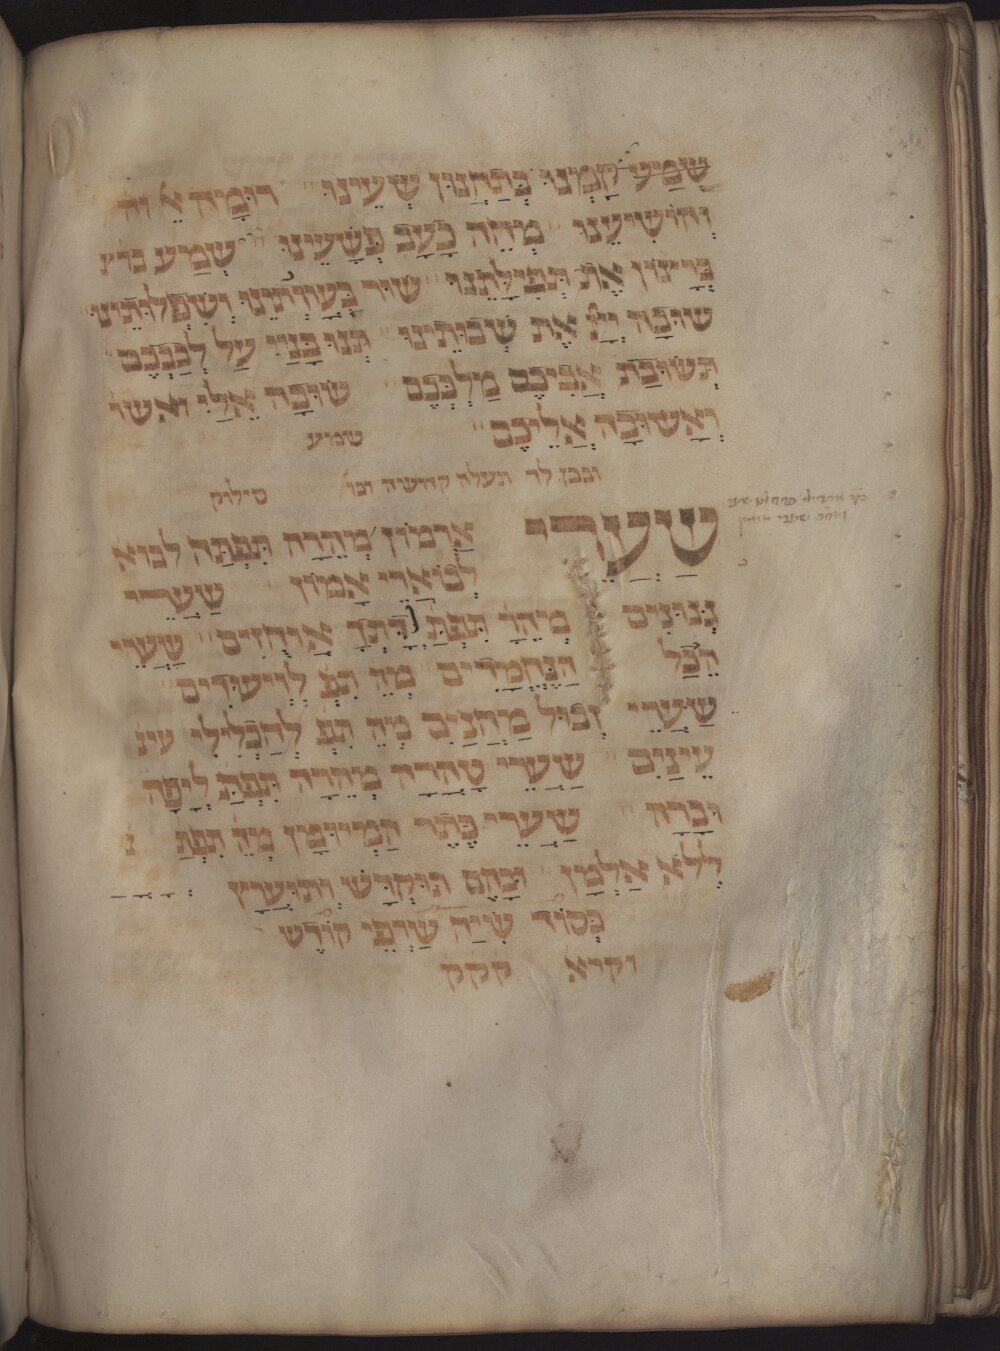 שמע קמנו בתחנון שעינו רומיה א וה
והושיענו מחה כעב פשעינו שמע
ברינון את תפילתנו שור בעוותינו ושפלותינו
שובה ייי את שבותינו תנו בניי על לבבכם
תשובת אביכם מלככם שובה אלי ואשו
ואשובה אליכם שמוע
ובכן לך תעלה קדושה וכו׳ סילוק
שערי ארמון מהרה תפתח לבוא
לבוארי אמון שערי
גנוזים מהר תפתח דתך אוחזים שערי
היכל הנחמדים מה תפ לוישודים
שערי זבול מחנים מה תפ להכלילי עינ
עינים שערי טהרה מהרה תפתח ליפה
וברה שערי כתר המיומן מה תפתח
ללא אלמן ובהם תוקדש ותוערץ
כסוד שיח שרפי קודש
וקרא קקק